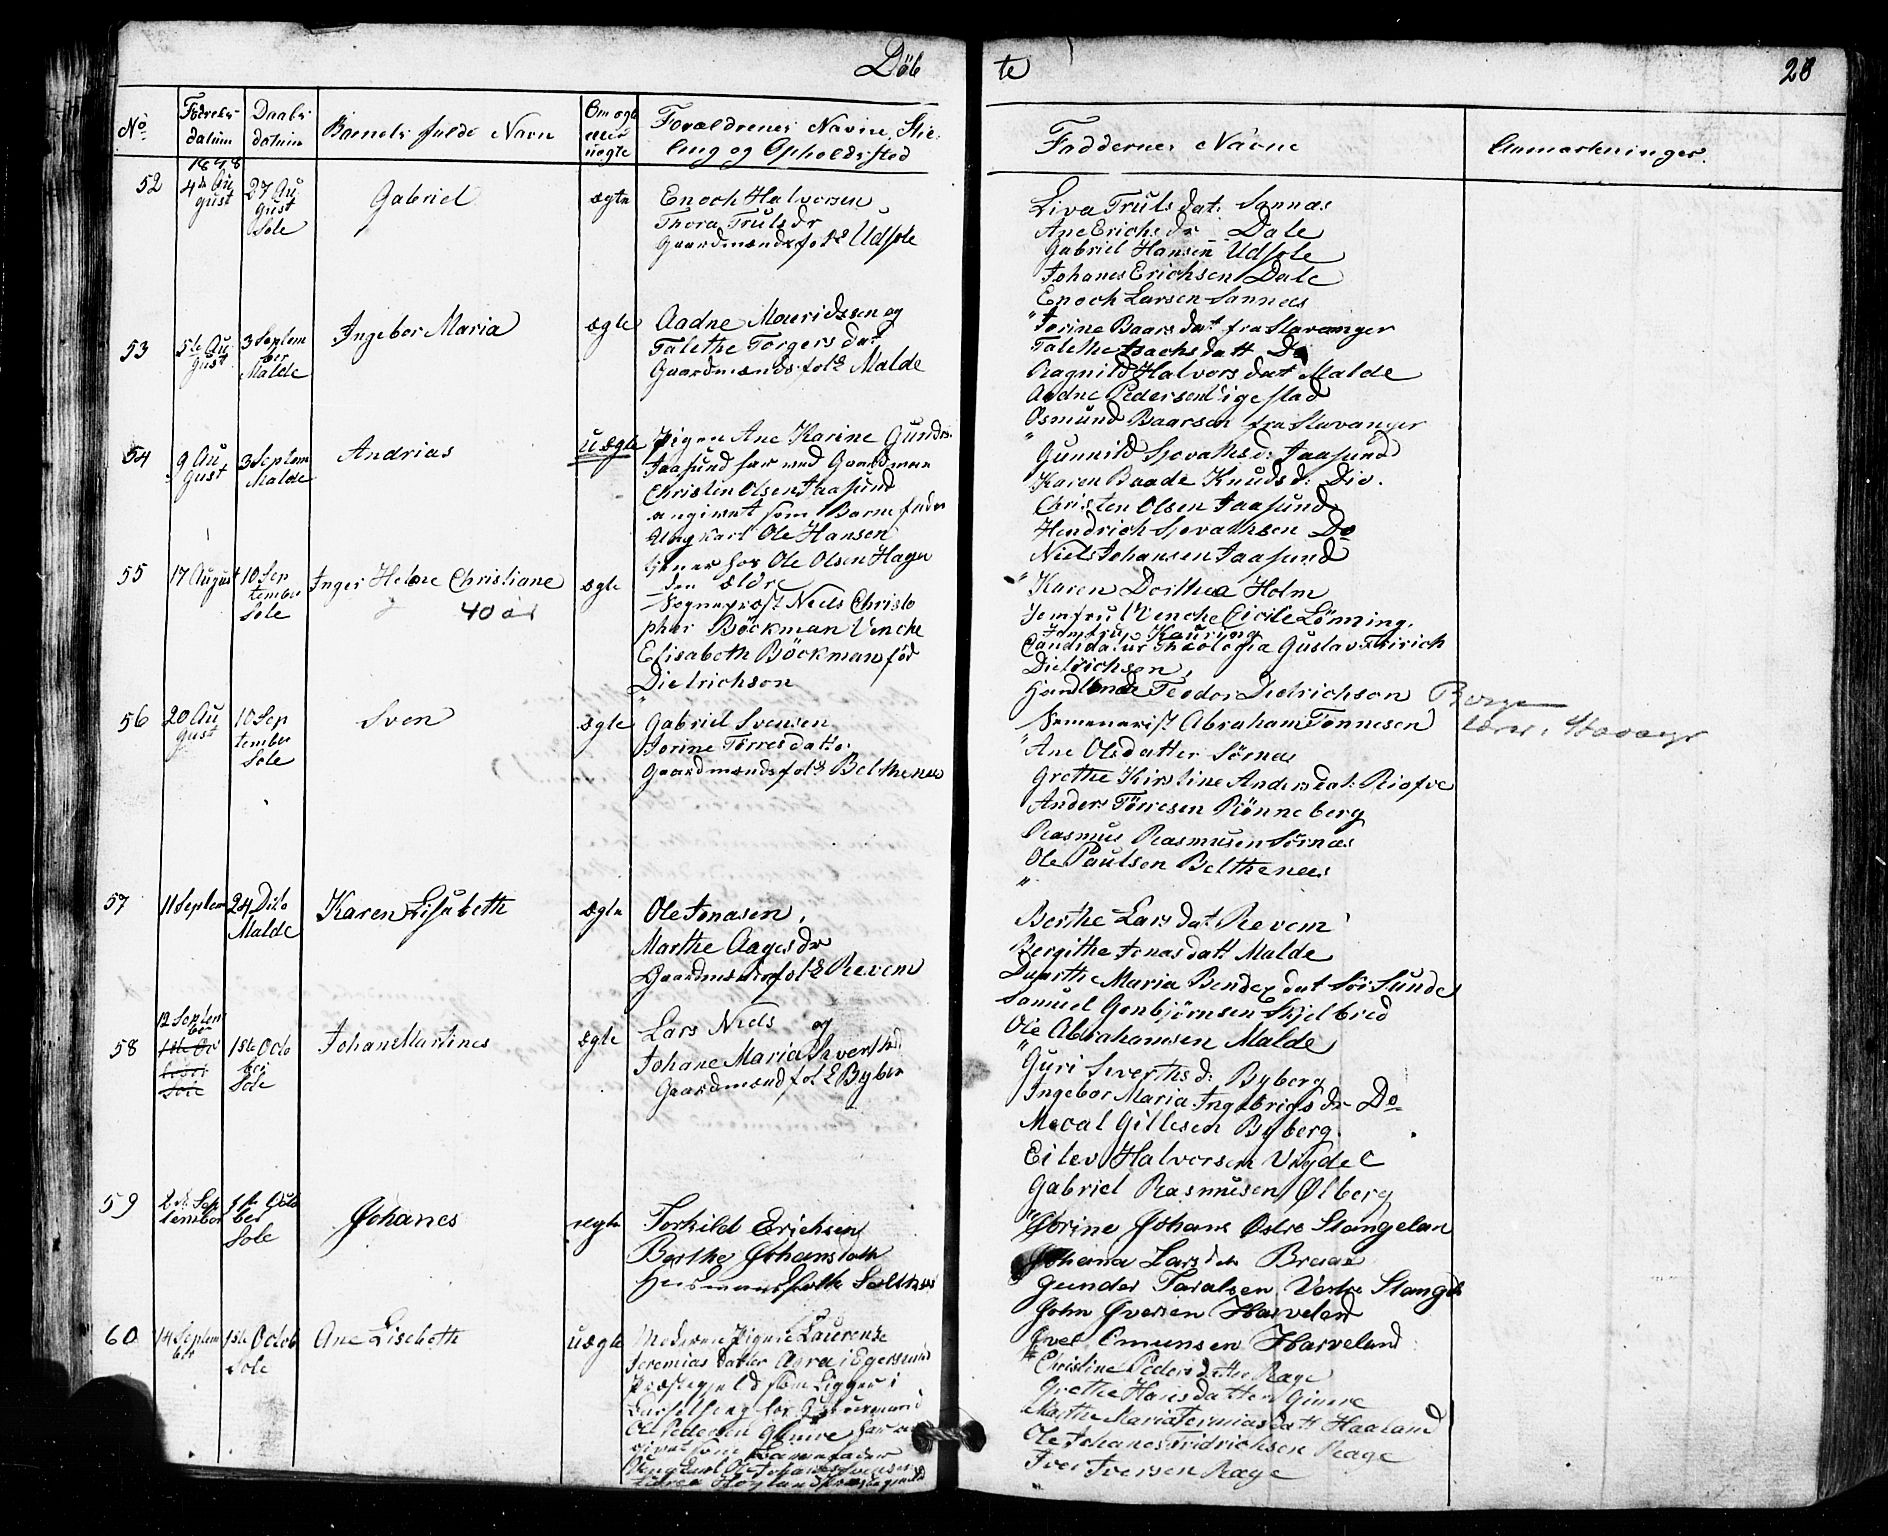 Döbte
28
No
Fødsels-
datum
Daabs
datum
Barnets fulde Navn
Om ægte
eller
uægte
Forældrenes Navne, Stil-
ling og Opholdssted
Faddernes Navne
Anmærkninger.
52
4de Au
gust
27 Au
gust
Sole
Gabriel
ægte
Enoch Halvorsen
Thora Truls dr
Gaardmandsfolk Udsole
Siva Truls dat: Sannæs
Ane Erichs dr Dale
Gabriel Hansen Udsole
Johanes Erichsen Dale
Enoch Larsen Sannes
53
5te Au
gust
3 Septem
ber
Malde
Ingebor Maria
ægte
Aadne Mouridssen og
Talethe Torgers dat
Gaardmands folk Malde
Torine Baars dat fra Stavanger
Talethe Isachs datt Do
Ragnild Halvors dat Malde
Aadne Pedersen Vigestad
Osmund Baarsen fra Stavanger
54
9 Au
gust
3 Septem
Malde
Andrias
uægte
Pigen Ane Karine Gunders
Jaasund har ved Gaardman
Christen Olsen Jaasund
angivet som Barnefader
Ungkarl Ole Hansen
tjener hos Ole Olsen Hagen
den ældre
Gunnild Sjovaths d: Jaasund
Karen Baade Knuds d: Dio.
Christen Olsen Jaasund
Hendrich Sjovathsen Do
Niels Johansen Jaasund
55
17 August
10 Sep
tember
Sole
Inger Helene Christiane
40 år
ægte
Sogneprest Niels Christo
pher Böckman Venche
Elisabeth Böckman föd
Dietrichson
Karen Dorthea Holm
Jomfru Venche Cicile Lönning,
Jomfru
Candidatur Theologia Gustav
Dietrichsen,
Handlende Teodor Dietrichson
Semenarist Abraham Tønnesen
56
20 Au
gust
10 Sep
tember
Sole
Sven
ægte
Gabriel Svensen
Torine Tørres datter
Gaardmandsfolk Belthenæs
Ane Olsdatter Sørnæs
Grethe Kirstine Anders dat: Riofve
Anders Törresen Rönneberg
Rasmus Rasmusen Sörnæs
Ole Paulsen Belthenæs
57
11 Septem
24 Dito
Malde
Karen Lisabeth
ægte
Ole Jonasen,
Marthe Aages dr
Gaardmandsfolk Revem
Berthe Lars dat Revem
Bergithe Jonas datt Malde
Dorthe Maria Bendex dat Sör Sunde
Samuel Gunbjörnsen Skjelbred
Ole Abrahamsen Malde
58
12 Septem
ber
1ste Oc
tober
Sole
1ste Octo
ber
Sole
Johane Martines
ægte
Lars Niels og
Johane Maria Siverthsd
Gaardmandfolk Byber
Guri Siverths d: Byberg
Ingebor Maria Ingebrigs dr Do
Mecal Gillesen Byberg.
Eilev Halvorsen Vigdel
Gabriel Rasmusen Ølberg
59
2de Sep
tember
1ste Octo
ber
Sole
Johanes
ægte
Torkild Erichsen
Berthe Johansdatt
Huusmansfolk
Torine Johans Østre Stangelan
Johana Lars dtr Braae
Gunder Taralsen Vestre Stangel
John Iversen Harveland
Ivel Omunsen Harveland
60
14 Septem
ber
1ste Octob
Sole
Ane Lisebeth
uægte
Moderen Pigen Laurentse
Jeremias datter i Egersund
Præstegjeld som Ligger i
Barselseng hos
Ole Pedersen Gimre har an
givet som Barnefader
Christine Peders datter Rage
Grethe Hans datter Gimre
Marthe Maria Jermias datt Haaland
Ole Johanes Fridrichsen Rage
Iver Iversen Rage